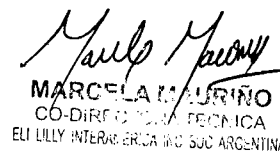 MARCELA MAURIÑO
CO-DIRECTORA TECNICA
ELI LILLY INTERAMERICA INC SUC ARGENTINA